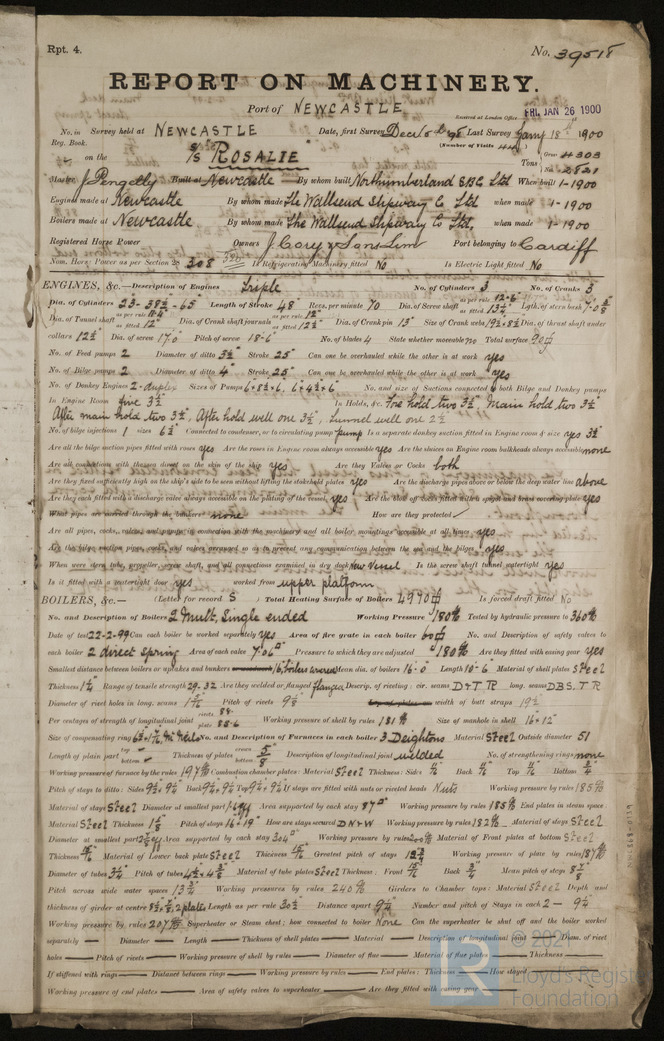 Rpt. 4.
No. 39518
REPORT ON MACHINERY.
Port of NEWCASTLE
Received at London Office FRI. JAN 26 1900
No. in Survey held at NEWCASTLE Date, first Survey Last Survey 1900
Reg. Book. (Number of Visits
on the S/S ROSALIE Tons Gross 4303
Net 2821
Master J. Pengelly Built at Newcastle By whom built Northumberland S.B.C. Ltd When built 1-1900
Engines made at Newcastle By whom made The Wallsend Slipway Co Ltd when made 1-1900
Boilers made at Newcastle By whom made The Wallsend Slipway Co Ltd, when made 1-1900
Registered Horse Power Owners J. Cory & Sons Lim Port belonging to Cardiff
Nom. Horse Power as per Section 28 308 Is Refrigerating Machinery fitted No Is Electric Light fitted No
ENGINES, &c.—Description of Engines Triple No. of Cylinders 3 No. of Cranks 3
Dia. of Cylinders 23-38½-65" Length of Stroke 48" Revs. per minute 70 Dia. of Screw shaft as per rule 12.6" as fitted 13¼" Lgth. of stern bush
Dia. of Tunnel shaft as fitted 12" Dia. of Crank shaft journals as per rule 12" as fitted 12½" Dia. of Crank pin 13" Size of Crank webs Dia. of thrust shaft under
collars 12½" Dia. of screw 17.0 Pitch of screw 18.6 No. of blades 4 State whether moveable no Total surface
No. of Feed pumps 2 Diameter of ditto 3½" Stroke 25" Can one be overhauled while the other is at work yes
No. of Bilge pumps 2 Diameter of ditto 4" Stroke 25" Can one be overhauled while the other is at work yes
No. of Donkey Engines 2-duplex Sizes of Pumps No. and size of Suctions connected to both Bilge and Donkey pumps
In Engine Room five 3½" In Holds, &c. Fore hold two 3½", Main hold two 3½"
After main hold two 3½", After hold well one 3½", Tunnel well one 2½"
No. of bilge injections 1 sizes 6½" Connected to condenser, or to circulating pump pump Is a separate donkey suction fitted in Engine room & size yes 3½"
Are all the bilge suction pipes fitted with roses yes Are the roses in Engine room always accessible yes Are the sluices on Engine room bulkheads always accessible none
Are all connections with the sea direct on the skin of the ship yes Are they Valves or Cocks both
Are they fixed sufficiently high on the ship's side to be seen without lifting the stokehold plates yes Are the discharge pipes above or below the deep water line above
Are they each fitted with a discharge valve always accessible on the plating of the vessel yes Are the blow off cocks fitted with a spigot and brass covering plate yes
What pipes are carried through the bunkers none How are they protected
Are all pipes, cocks, valves and pumps in connection with the machinery and all boiler mountings accessible at all times yes
Are the bilge suction pipes, cocks, and valves arranged so as to prevent any communication between the sea and the bilges yes
When were stern tube, propeller, screw shaft, and all connections examined in dry dock New Vessel Is the screw shaft tunnel watertight yes
Is it fitted with a watertight door yes worked from upper platform
BOILERS, &c.— (Letter for record S) Total Heating Surface of Boilers 4990 Is forced draft fitted No
No. and Description of Boilers 2 Mult, Single ended Working Pressure 180 Tested by hydraulic pressure to 360
Date of test 22-2-99 Can each boiler be worked separately yes Area of fire grate in each boiler 60 No. and Description of safety valves to
each boiler 2 direct spring Area of each valve 7.06 Pressure to which they are adjusted 180 Are they fitted with easing gear yes
Smallest distance between boilers or uptakes and bunkers Mean dia. of boilers 16-0 Length 10-6 Material of shell plates Steel
Thickness Range of tensile strength 29-32 Are they welded or flanged flanged Descrip. of riveting: cir. seams D & T R long. seams D.B.S. T R
Diameter of rivet holes in long. seams Pitch of rivets 9½" width of butt straps 19½"
Per centages of strength of longitudinal joint rivets plate 85.6 Working pressure of shell by rules 181 Size of manhole in shell 16 × 12"
Size of compensating ring No. and Description of Furnaces in each boiler 3 Deightons Material Steel Outside diameter 51
Length of plain part top bottom Thickness of plates crown bottom ⅝ Description of longitudinal joint welded No. of strengthening rings none
Working pressure of furnace by the rules 197 Combustion chamber plates: Material Steel Thickness: Sides Back Top Bottom ¾
Pitch of stays to ditto: Sides Back Top If stays are fitted with nuts or riveted heads Nuts Working pressure by rules 185
Material of stays Steel Diameter at smallest part Area supported by each stay 87 Working pressure by rules 185 End plates in steam space:
Material Steel Thickness Pitch of stays 16 × 19" How are stays secured D N & W Working pressure by rules 182 Material of stays Steel
Diameter at smallest part Area supported by each stay 304 Working pressure by rules Material of Front plates at bottom Steel
Thickness Material of Lower back plate Steel Thickness Greatest pitch of stays Working pressure of plate by rules 187
Diameter of tubes 3¼" Pitch of tubes Material of tube plates Steel Thickness: Front Back ¾ Mean pitch of stays
Pitch across wide water spaces 13¾" Working pressures by rules 240 Girders to Chamber tops: Material Steel Depth and
thickness of girder at centre 2 plates Length as per rule 30½ Distance apart 9¼" Number and pitch of Stays in each 2 — 9¼"
Working pressure by rules 207 Superheater or Steam chest; how connected to boiler None Can the superheater be shut off and the boiler worked
separately Diameter Length Thickness of shell plates Material Description of longitudinal joint Diam. of rivet
holes Pitch of rivets Working pressure of shell by rules Diameter of flue Material of flue plates Thickness
If stiffened with rings Distance between rings Working pressure by rules End plates: Thickness How stayed
Working pressure of end plates Area of safety valves to superheater Are they fitted with easing gear
© 2021
Lloyd's Register
Foundation